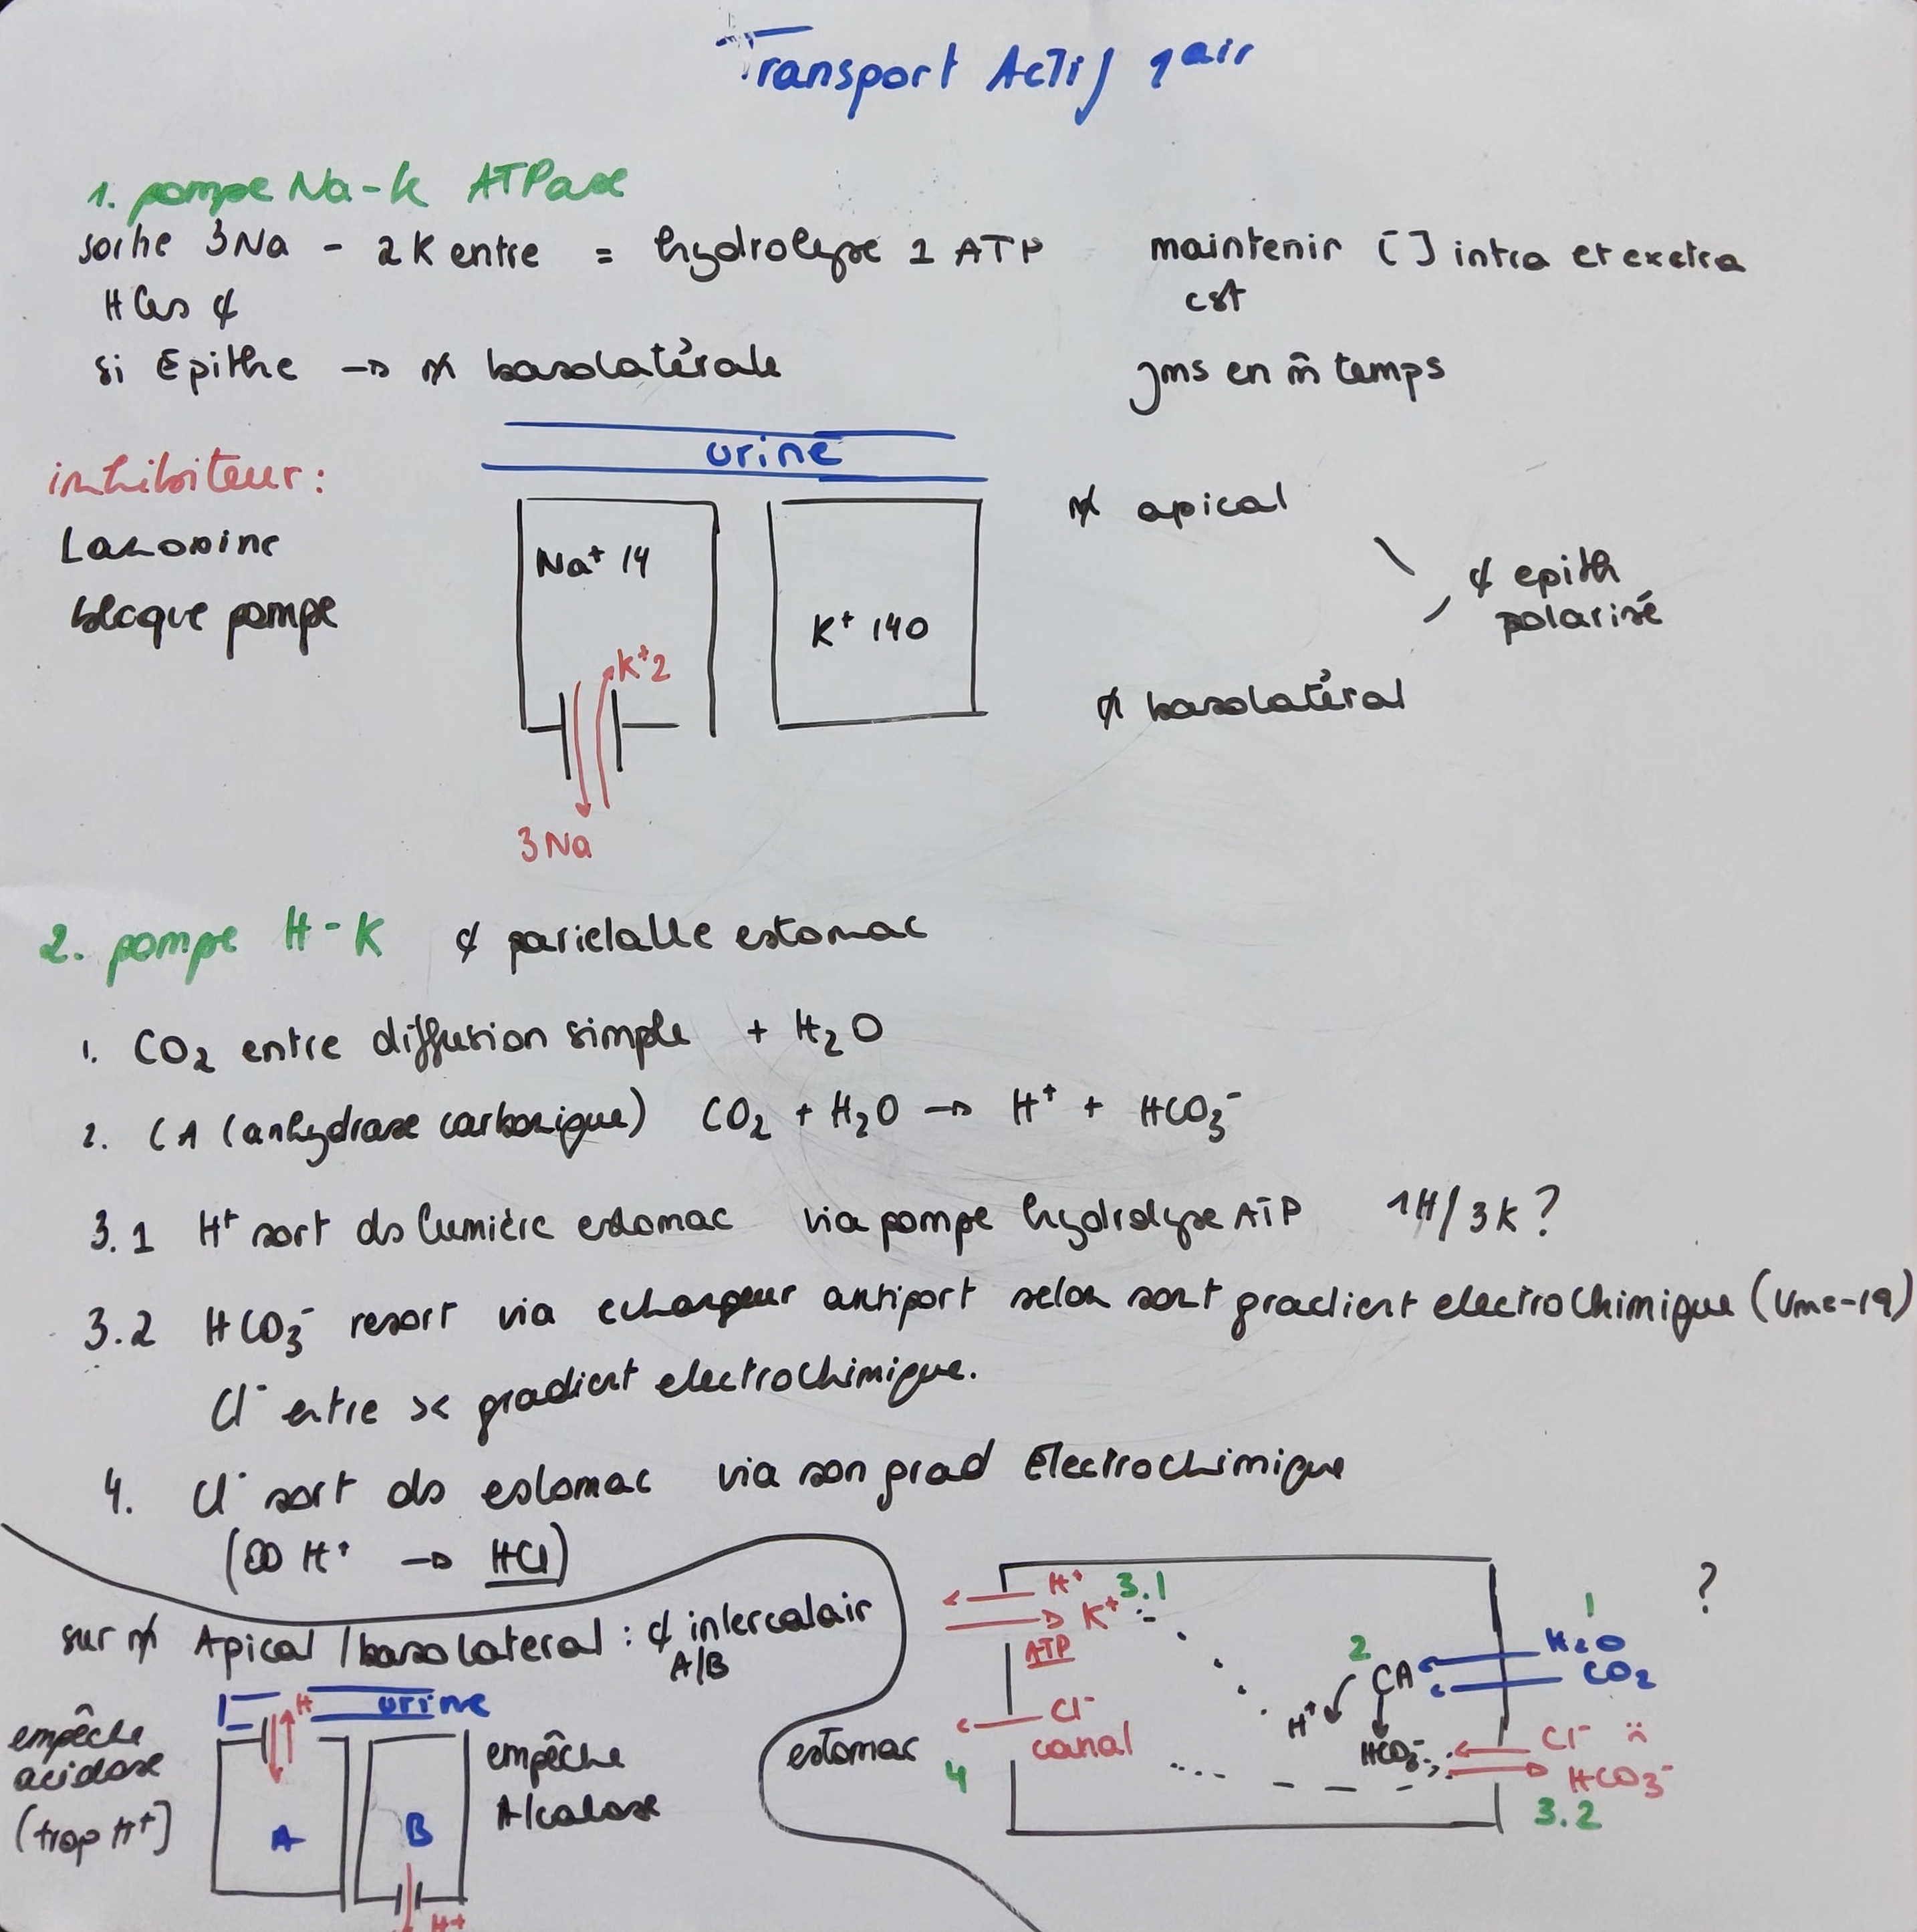 Transport Actif 1air
1. pompe Na-K ATPase
sortie 3Na - 2K entre = hydrolyse 1 ATP
maintenir [ ] intra et exetra
cst
si Epithe → basolatérale
jms en m̂ temps
urine
inhibiteur:
bloque pompe
Na+ 14
K+ 140
K+2
3Na
apical
¢ epith
polarisé
basolatéral
2. pompe H-K ¢ parielalle estomac
1. CO2 entre diffusion simple + H2O
2. CA (anhydrase carbonique) CO2 + H2O → H+ + HCO3-
3.1 H+ sort ds lumière estomac via pompe hydrolyse ATP 1H/3K?
3.2 HCO3- resort via echangeur antiport selon sont gradient electrochimique (Vme-19)
Cl- entre gradient electrochimique.
4. Cl- sort ds estomac via son grad Electrochimique
H+ → HCl)
sur Apical / basolateral : ¢ intercalair
A/B
H
urine
empêche
acidose
(trop H+)
A
B
empêche
Alcalose
H+
H+ 3.1
K+
ATP
Cl-
canal
estomac
4
1
?
H2O
CO2
2
CA
H+
HCO3-
Cl-
HCO3-
3.2